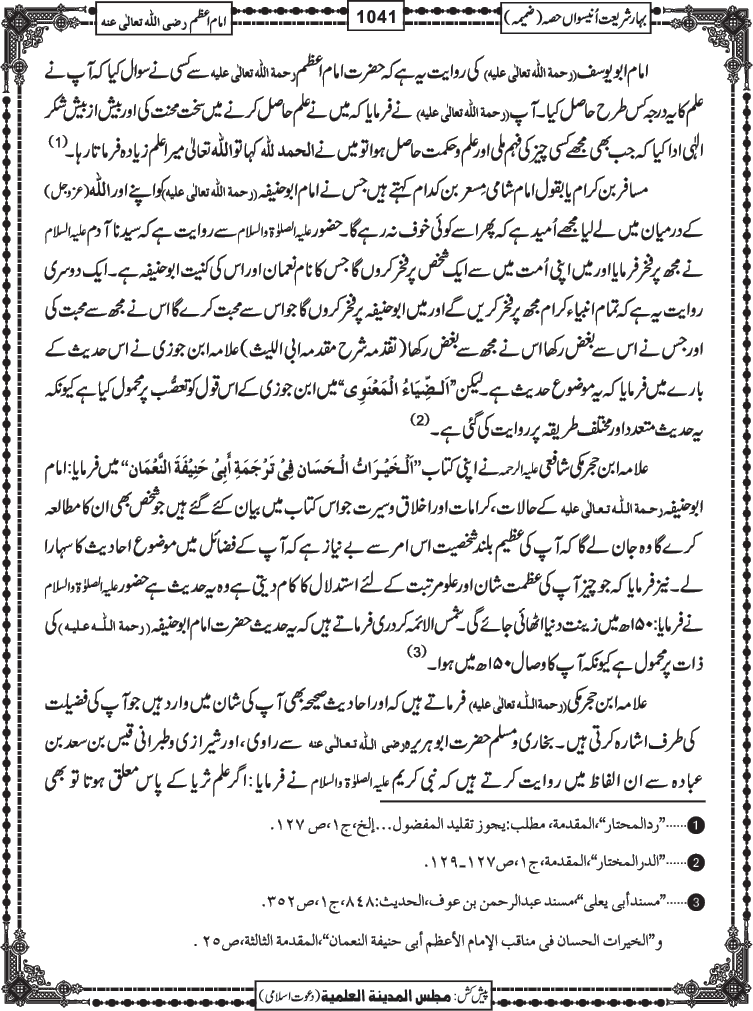 بہار شریعت اُنیسواں حصہ (ضمیمہ)
1041
امام اعظم رضی اللہ تعالٰی عنہ
امام ابو یوسف (رحمة الله تعالى عليه) کی روایت یہ ہے کہ حضرت امام اعظم رحمة الله تعالى عليه سے کسی نے سوال کیا کہ آپ نے
علم کا یہ درجہ کس طرح حاصل کیا۔ آپ (رحمة الله تعالى عليه) نے فرمایا کہ میں نے علم حاصل کرنے میں سخت محنت کی اور بیش از بیش شکر
الٰہی ادا کیا کہ جب بھی مجھے کسی چیز کی فہم ملی اور علم و حکمت حاصل ہوا تو میں نے الحمد للہ کہا تو اللہ تعالٰی میرا علم زیادہ فرماتا رہا۔ (1)
مسافر بن کرام یا بقول امام شامی: مِسعر بن کدام کہتے ہیں جس نے امام ابو حنیفہ (رحمة الله تعالى عليه) کو اپنے اور اللہ (عزوجل)
کے درمیان میں لے لیا مجھے اُمید ہے کہ پھر اسے کوئی خوف نہ رہے گا۔ حضور علیہ الصلوٰۃ والسلام سے روایت ہے کہ سیدنا آدم علیہ السلام
نے مجھ پر فخر فرمایا اور میں اپنی اُمت میں سے ایک شخص پر فخر کروں گا جس کا نام نعمان اور اس کی کنیت ابو حنیفہ ہے۔ ایک دوسری
روایت یہ ہے کہ تمام انبیاء کرام مجھ پر فخر کریں گے اور میں ابو حنیفہ پر فخر کروں گا جو اس سے محبت کرے گا اس نے مجھ سے محبت کی
اور جس نے اس سے بغض رکھا اس نے مجھ سے بغض رکھا (تقدّمہ شرح مقدمہ ابی اللیث) علامہ ابن جوزی نے اس حدیث کے
بارے میں فرمایا کہ یہ موضوع حدیث ہے۔ لیکن ”اَلضِّیَاءُ الْمَعْنَوِی“ میں ابن جوزی کے اس قول کو تعصُّب پر محمول کیا ہے کیونکہ
یہ حدیث متعدد اور مختلف طریقہ پر روایت کی گئی ہے۔ (2)
علامہ ابن حجر مکی شافعی علیہ الرحمہ نے اپنی کتاب ”اَلْخَيْرَاتُ الْحَسَان فِیْ تَرْجَمَةِ أَبِیْ حَنِيْفَةَ النُّعْمَان“ میں فرمایا: امام
ابو حنیفہ رحمة الله تعالى عليه کے حالات، کرامات اور اخلاق و سیرت جو اس کتاب میں بیان کئے گئے ہیں جو شخص بھی ان کا مطالعہ
کرے گا وہ جان لے گا کہ آپ کی عظیم بلند شخصیت اس امر سے بے نیاز ہے کہ آپ کے فضائل میں موضوع احادیث کا سہارا
لے۔ نیز فرمایا کہ جو چیز آپ کی عظمت شان اور علو مرتبت کے لئے استدلال کا کام دیتی ہے وہ یہ حدیث ہے حضور علیہ الصلوٰۃ والسلام
نے فرمایا: ۱۵۰ھ میں زینت دنیا اٹھائی جائے گی۔ شمس الائمہ کردری فرماتے ہیں کہ یہ حدیث حضرت امام ابو حنیفہ (رحمة الله عليه) کی
ذات پر محمول ہے کیونکہ آپ کا وصال ۱۵۰ھ میں ہوا۔ (3)
علامہ ابن حجر مکی (رحمة الله تعالى عليه) فرماتے ہیں کہ اور احادیث صحیحہ بھی آپ کی شان میں وارد ہیں جو آپ کی فضیلت
کی طرف اشارہ کرتی ہیں۔ بخاری و مسلم حضرت ابو ہریرہ رضی الله تعالى عنه سے راوی، اور شیرازی و طبرانی قیس بن سعد بن
عبادہ سے ان الفاظ میں روایت کرتے ہیں کہ نبی کریم علیہ الصلوٰۃ والسلام نے فرمایا: اگر علم ثریا کے پاس معلق ہوتا تو بھی
1 ......”ردالمحتار“،المقدمة، مطلب:يجوز تقليد المفضول...إلخ،ج١،ص ١٢٧.
2 ......”الدرالمختار“،المقدمة،ج١،ص١٢٧-١٢٩.
3 ......”مسند أبي يعلى“،مسند عبدالرحمن بن عوف،الحديث:٨٤٨،ج١،ص٣٥٢.
و”الخيرات الحسان فى مناقب الإمام الأعظم أبي حنيفة النعمان“،المقدمة الثالثة،ص٢٥ .
پیش کش: مجلس المدينة العلمية (دعوت اسلامی)